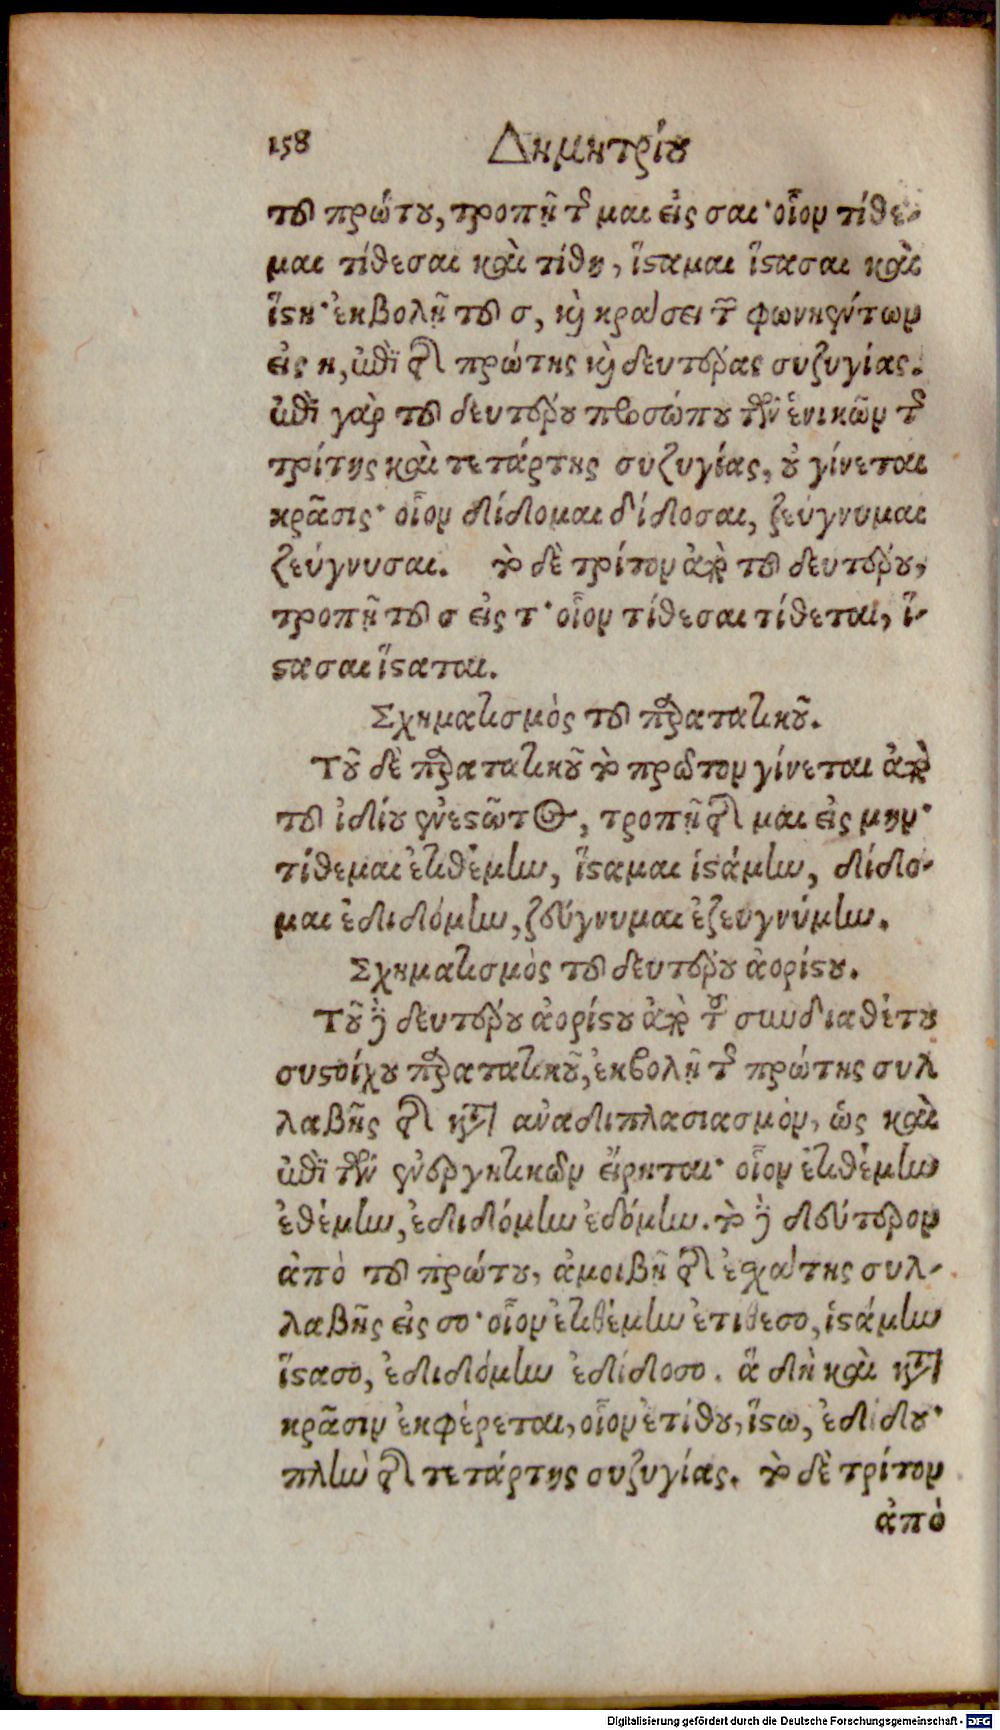 158 Δημητρίου
τοῦ πρώτου, τροπῇ τῆς μαι εἰς σαι· οἷον τίθε-
μαι τίθεσαι καὶ τίθη, ἵσταμαι ἵστασαι καὶ
ἵστη· ἐκβολῇ τοῦ σ, καὶ κράσει τῶν φωνηέντων
εἰς η, ἐπὶ τῆς πρώτης καὶ δευτέρας συζυγίας.
ἐπὶ γὰρ τοῦ δευτέρου προσώπου τῶν ἑνικῶν τῆς
τρίτης καὶ τετάρτης συζυγίας, οὐ γίνεται
κρᾶσις· οἷον δίδομαι δίδοσαι, ζεύγνυμαι
ζεύγνυσαι. τὸ δὲ τρίτον ἀπὸ τοῦ δευτέρου,
τροπῇ τοῦ σ εἰς τ· οἷον τίθεσαι τίθεται, ἵ-
στασαι ἵσταται.
Σχηματισμὸς τοῦ παρατατικοῦ.
Τοῦ δὲ παρατατικοῦ τὸ πρῶτον γίνεται ἀπὸ
τοῦ ἰδίου ἐνεστῶτος, τροπῇ τῆς μαι εἰς μην·
τίθεμαι ἐτιθέμην, ἵσταμαι ἱστάμην, δίδο-
μαι ἐδιδόμην, ζεύγνυμαι ἐζευγνύμην.
Σχηματισμὸς τοῦ δευτέρου ἀορίστου.
Τοῦ δὲ δευτέρου ἀορίστου ἀπὸ τοῦ συνδιαθέτου
συστοίχου παρατατικοῦ, ἐκβολῇ τῆς πρώτης συλ
λαβῆς τῆς κατὰ ἀναδιπλασιασμὸν, ὡς καὶ
ἐπὶ τῶν ἐνεργητικῶν εἴρηται· οἷον ἐτιθέμην
ἐθέμην, ἐδιδόμην ἐδόμην. τὸ δὲ δεύτερον
ἀπὸ τοῦ πρώτου, ἀμοιβῇ τῆς ἐσχάτης συλ-
λαβῆς εἰς σο· οἷον ἐτιθέμην ἐτίθεσο, ἱστάμην
ἵστασο, ἐδιδόμην ἐδίδοσο. ἃ δὴ καὶ κατὰ
κρᾶσιν ἐκφέρεται, οἷον ἐτίθου, ἵστω, ἐδίδου·
πλὴν τῆς τετάρτης συζυγίας. τὸ δὲ τρίτον
ἀπὸ
Digitalisierung gefördert durch die Deutsche Forschungsgemeinschaft - DFG